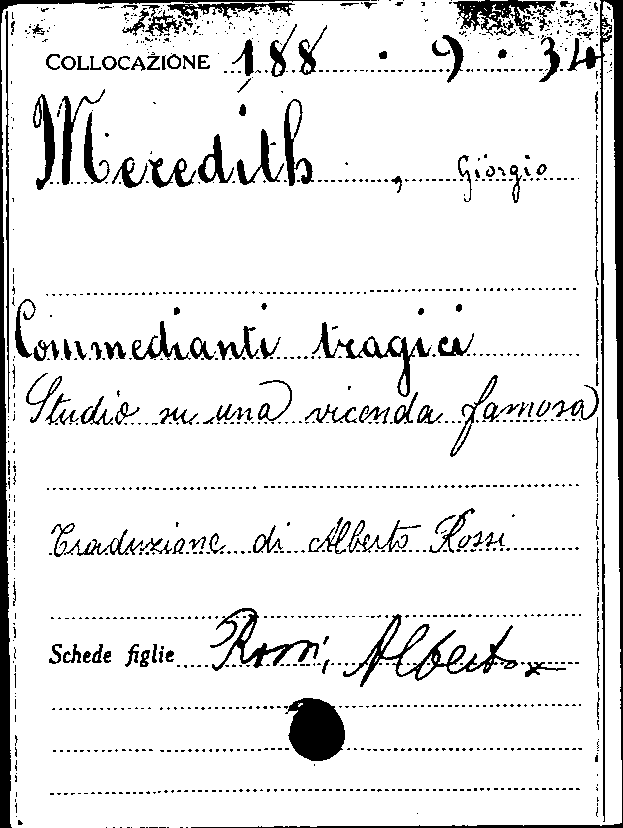 COLLOCAZIONE 188 · 9 · 34
Meredith, Giorgio
Commedianti tragici
Studio su una vicenda famosa
Traduzione di Alberto Rossi
Schede figlie Rossi, Alberto x